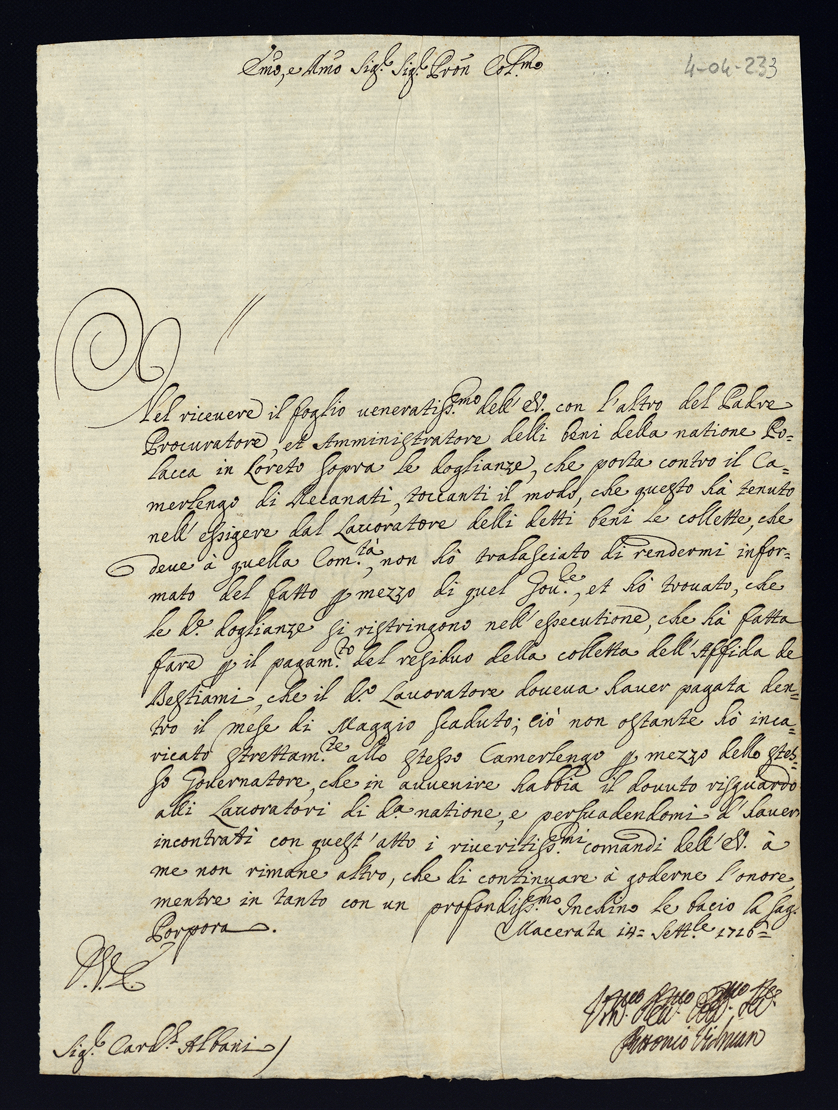 Emo, e Rmo Sigre. Sigre. Pron Colmo
4-04-233
Nel riceuere il foglio ueneratiss.mo dell'E.V. con l'altro del Padre
Procuratore, et Amministratore delli beni della natione Po=
lacca in Loreto sopra le doglianze, che porta contro il Ca=
merlengo di Recanati, toccanti il modo, che questo hà tenuto
nell'essigere dal Lauoratore delli detti beni le collette, che
deue à quella Com.tà, non hò tralasciato di rendermi infor=
mato del fatto p mezzo di quel Gou.re, et hò trouato, che
le d.e doglianze si ristringono nell'essecutione, che hà fatta
fare p il pagam.to del residuo della colletta dell'Affida de
Bestiami, che il d.o Lauoratore doueua hauer pagata den=
tro il mese di Maggio scaduto; ciò non ostante hò inca=
ricato strettam.te allo stesso Camerlengo p mezzo dello stes=
so Gouernatore, che in auuenire habbia il douuto risguardo
alli Lauoratori di da natione, e persuadendomi d'hauer
incontrati con quest'atto i riueritiss.mi comandi dell'E.V. à
me non rimane altro, che di continuare à goderne l'onore,
mentre in tanto con un profondiss.mo Inchino le bacio la Sag.
Porpora.
Macerata 14= Sett.re 1716=
Sig.r Card.l Albani
Antonio